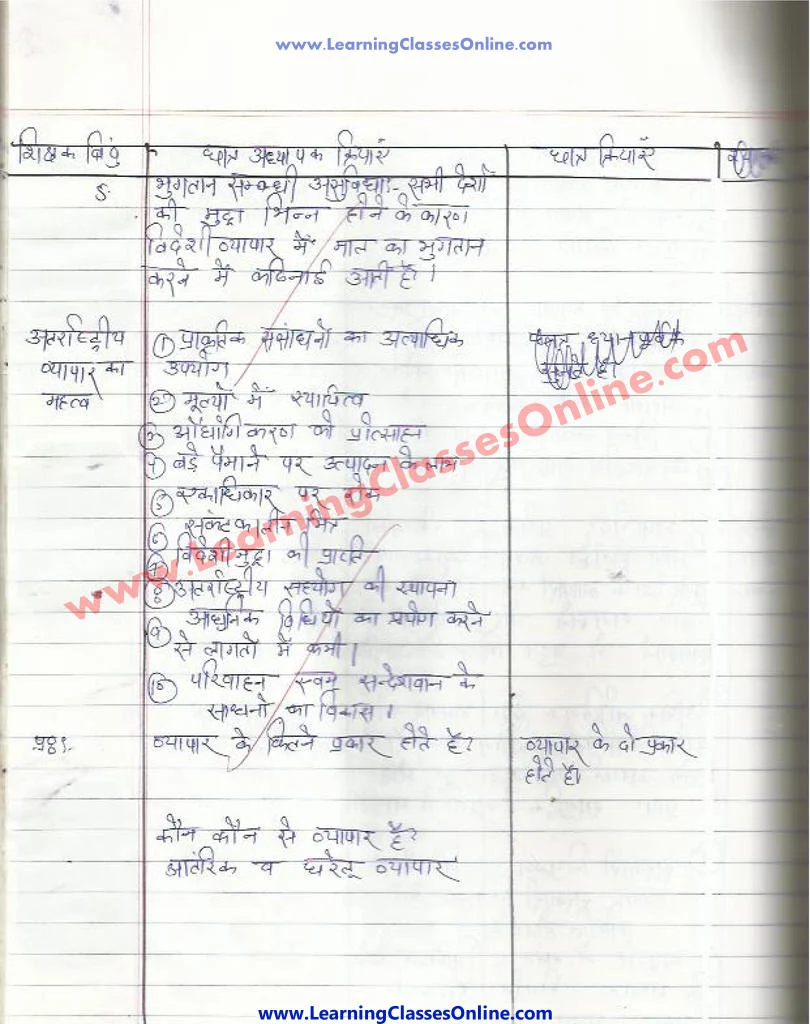 www.LearningClassesOnline.com
शिक्षक बिंदु छात्र अध्यापक क्रियाएँ छात्र क्रियाएँ
5. भुगतान सम्बन्धी असुविधा:- सभी देशों
की मुद्रा भिन्न होने के कारण
विदेशी व्यापार में माल का भुगतान
करने में कठिनाई आती है।
अंतर्राष्ट्रीय
व्यापार का
महत्व
① प्राकृतिक संसाधनों का अत्याधिक
उपयोग
② मूल्यों में स्थायित्व
③ औद्योगिकरण को प्रोत्साहन
4 बड़े पैमाने पर उत्पादन के लाभ
⑤ एकाधिकार पर रोक
⑥ संकटकालीन मित्र
⑦ विदेशी मुद्रा की प्राप्ति
⑧ अंतर्राष्ट्रीय सहयोग की स्थापना
⑨ आधुनिक विधियों का प्रयोग करने
से लागतों में कमी।
⑩ परिवाहन एवम् सन्देशवान के
साधनों का विकास।
छात्र ध्यानपूर्वक
सुनते है।
प्रश्न व्यापार के कितने प्रकार होते है? व्यापार के दो प्रकार
होते है।
कौन कौन से व्यापार है?
आंतरिक व घरेलू व्यापार
www.LearningClassesOnline.com
www.LearningClassesOnline.com